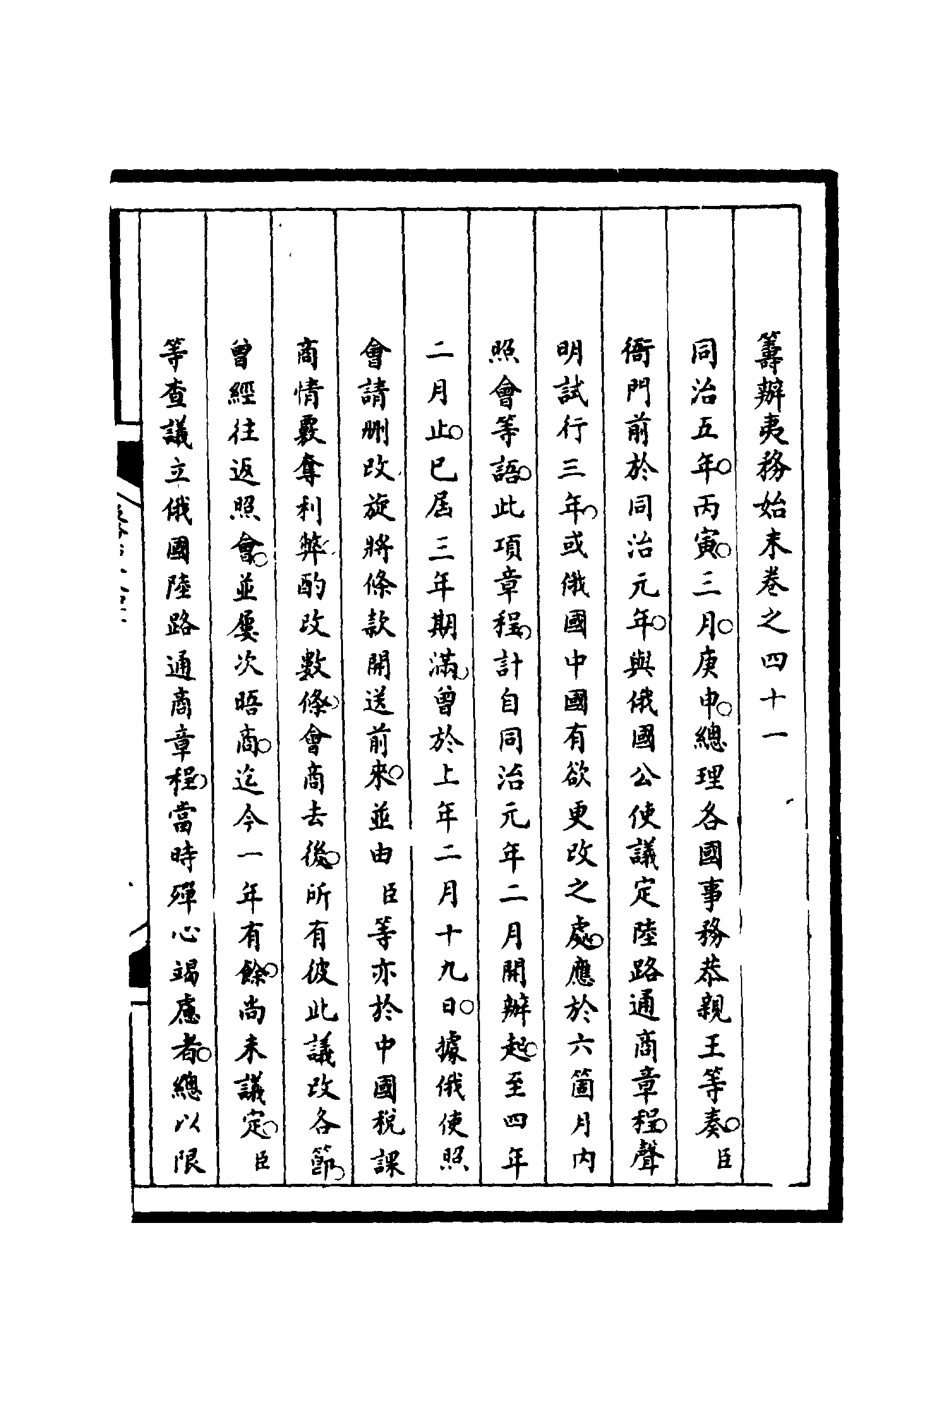 籌辦夷務始末卷之四十一
同治五年。丙寅。三月。庚申。總理各國事務恭親王等奏。臣
衙門前於同治元年。與俄國公使議定陸路通商章程。聲
明試行三年。或俄國中國有欲更改之處。應於六箇月內
照會等語。此項章程。計自同治元年二月開辦起。至四年
二月止。已屆三年期滿。曾於上年二月十九日。據俄使照
會請刪改。旋將條款開送前來。並由臣等亦於中國稅課
商情覈奪利弊。酌改數條。會商去後。所有彼此議改各節。
曾經往返照會。並屢次晤商。迄今一年有餘。尚未議定。臣
等查議立俄國陸路通商章程。當時殫心竭慮者。總以限